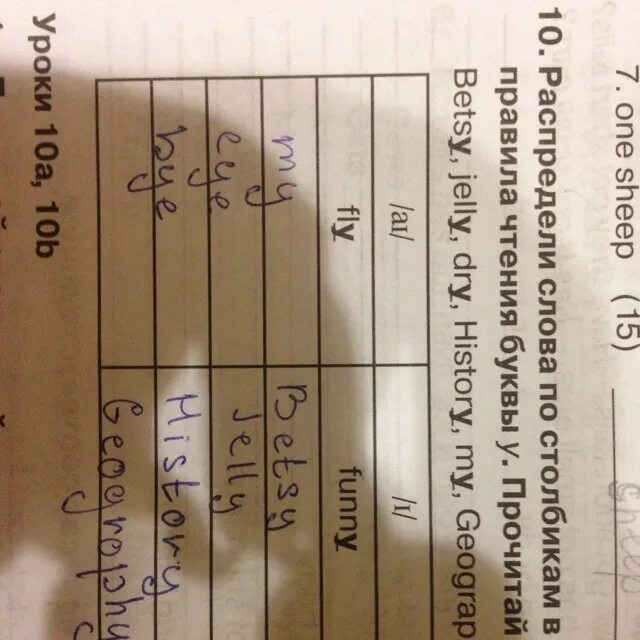 7. one sheep (15)
10. Распредели слова по столбикам в
правила чтения буквы y. Прочитай
Betsy, jelly, dry, History, my, Geograp
/aɪ/ /ɪ/
fly funny
my Betsy
eye jelly
bye History
Geography
Уроки 10a, 10b